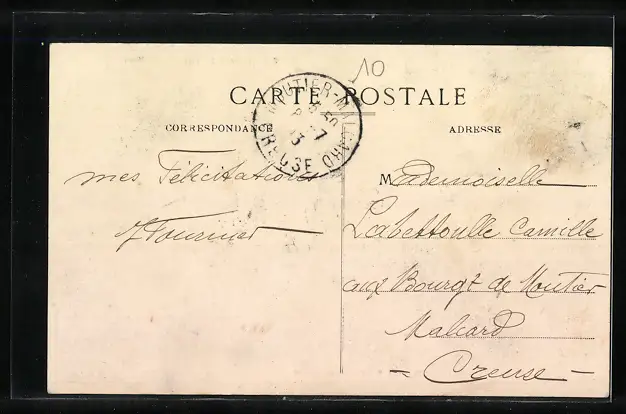 10
CARTE POSTALE
CORRESPONDANCE
ADRESSE
MOUTIER-MALCARD
CREUSE
mes Félicitations
Mademoiselle
Labettoulle Camille
aux Bourgt de Moutier
Malcard
- Creuse -